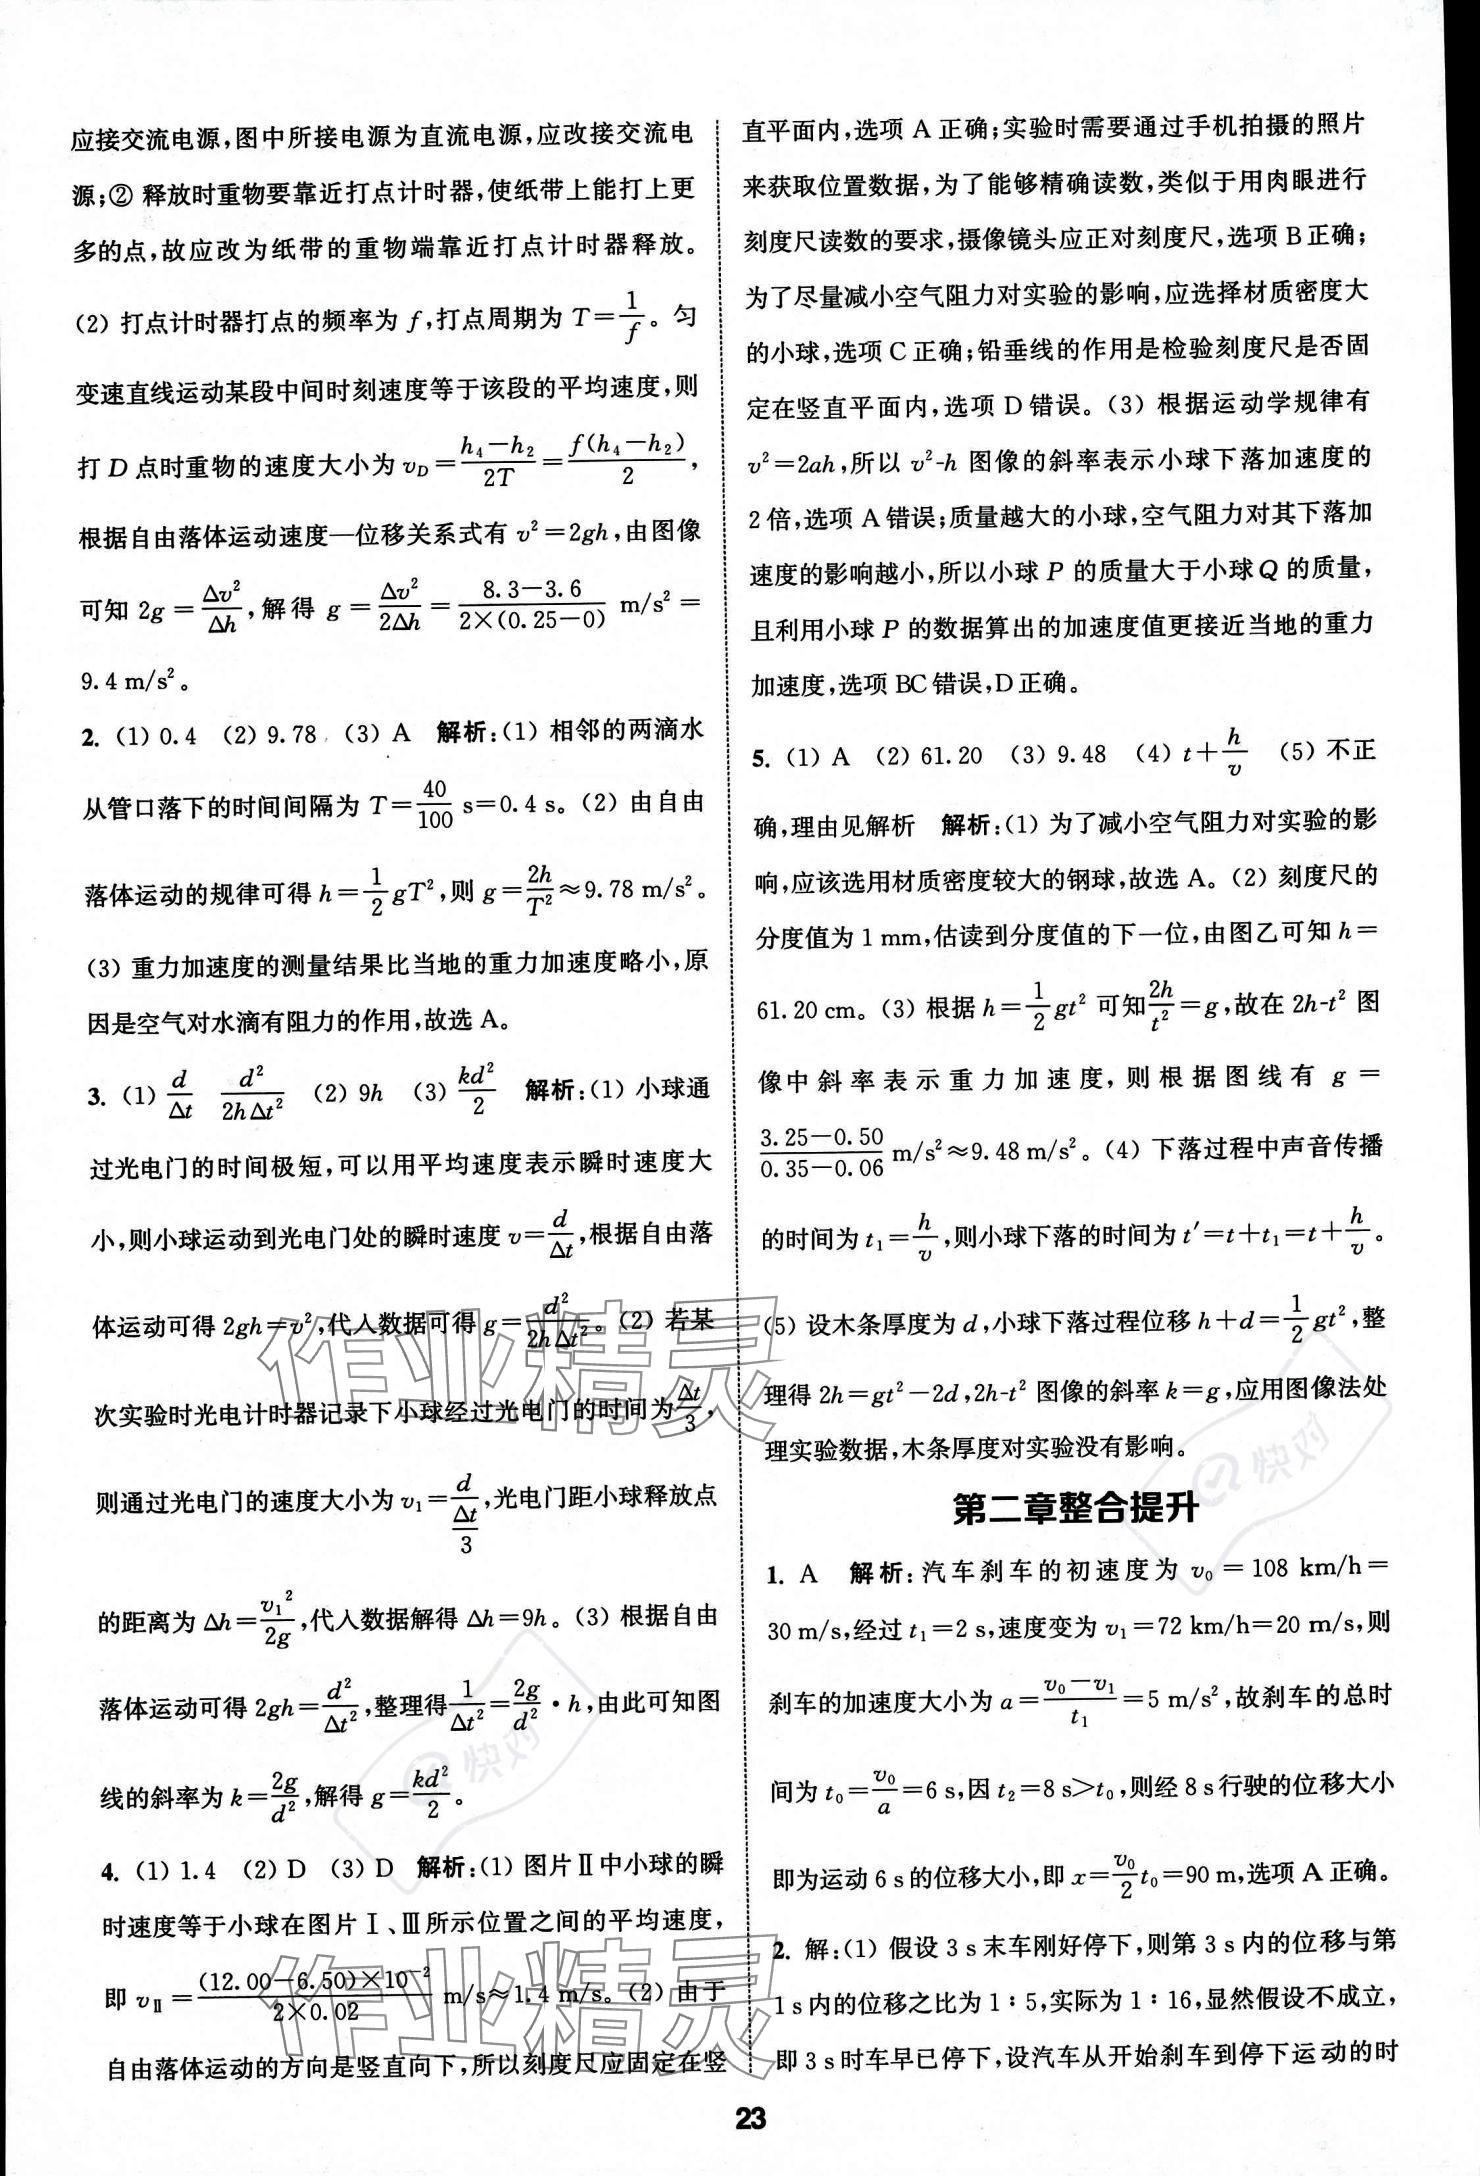 应接交流电源,图中所接电源为直流电源,应改接交流电
源;② 释放时重物要靠近打点计时器,使纸带上能打上更
多的点,故应改为纸带的重物端靠近打点计时器释放。
(2) 打点计时器打点的频率为 f,打点周期为 T=1/f。匀
变速直线运动某段中间时刻速度等于该段的平均速度,则
打 D 点时重物的速度大小为 v_D=(h₄-h₂)/2T=f(h₄-h₂)/2,
根据自由落体运动速度—位移关系式有 v²=2gh,由图像
可知 2g=Δv²/Δh,解得 g=Δv²/2Δh=(8.3-3.6)/(2×(0.25-0)) m/s²=
9.4 m/s²。
2. (1) 0.4 (2) 9.78 (3) A 解析:(1) 相邻的两滴水
从管口落下的时间间隔为 T=40/100 s=0.4 s。(2) 由自由
落体运动的规律可得 h=1/2 gT²,则 g=2h/T²≈9.78 m/s²。
(3) 重力加速度的测量结果比当地的重力加速度略小,原
因是空气对水滴有阻力的作用,故选 A。
3. (1) d/Δt d²/2hΔt² (2) 9h (3) kd²/2 解析:(1) 小球通
过光电门的时间极短,可以用平均速度表示瞬时速度大
小,则小球运动到光电门处的瞬时速度 v=d/Δt,根据自由落
体运动可得 2gh=v²,代入数据可得 g=d²/2hΔt²。(2) 若某
次实验时光电计时器记录下小球经过光电门的时间为 Δt/3,
则通过光电门的速度大小为 v₁=d/(Δt/3),光电门距小球释放点
的距离为 Δh=v₁²/2g,代入数据解得 Δh=9h。(3) 根据自由
落体运动可得 2gh=d²/Δt²,整理得 1/Δt²=2g/d²·h,由此可知图
线的斜率为 k=2g/d²,解得 g=kd²/2。
4. (1) 1.4 (2) D (3) D 解析:(1) 图片Ⅱ中小球的瞬
时速度等于小球在图片Ⅰ、Ⅲ所示位置之间的平均速度,
即 v_Ⅱ=(12.00-6.50)×10⁻²/(2×0.02) m/s≈1.4 m/s。(2) 由于
自由落体运动的方向是竖直向下,所以刻度尺应固定在竖
直平面内,选项 A 正确;实验时需要通过手机拍摄的照片
来获取位置数据,为了能够精确读数,类似于用肉眼进行
刻度尺读数的要求,摄像镜头应正对刻度尺,选项 B 正确;
为了尽量减小空气阻力对实验的影响,应选择材质密度大
的小球,选项 C 正确;铅垂线的作用是检验刻度尺是否固
定在竖直平面内,选项 D 错误。(3) 根据运动学规律有
v²=2ah,所以 v²-h 图像的斜率表示小球下落加速度的
2 倍,选项 A 错误;质量越大的小球,空气阻力对其下落加
速度的影响越小,所以小球 P 的质量大于小球 Q 的质量,
且利用小球 P 的数据算出的加速度值更接近当地的重力
加速度,选项 BC 错误,D 正确。
5. (1) A (2) 61.20 (3) 9.48 (4) t+h/v (5) 不正
确,理由见解析 解析:(1) 为了减小空气阻力对实验的影
响,应该选用材质密度较大的钢球,故选 A。(2) 刻度尺的
分度值为 1 mm,估读到分度值的下一位,由图乙可知 h=
61.20 cm。(3) 根据 h=1/2 gt² 可知 2h/t²=g,故在 2h-t² 图
像中斜率表示重力加速度,则根据图线有 g=
(3.25-0.50)/(0.35-0.06) m/s²≈9.48 m/s²。(4) 下落过程中声音传播
的时间为 t₁=h/v,则小球下落的时间为 t′=t+t₁=t+h/v。
(5) 设木条厚度为 d,小球下落过程位移 h+d=1/2 gt²,整
理得 2h=gt²-2d,2h-t² 图像的斜率 k=g,应用图像法处
理实验数据,木条厚度对实验没有影响。
第二章整合提升
1. A 解析:汽车刹车的初速度为 v₀=108 km/h=
30 m/s,经过 t₁=2 s,速度变为 v₁=72 km/h=20 m/s,则
刹车的加速度大小为 a=(v₀-v₁)/t₁=5 m/s²,故刹车的总时
间为 t₀=v₀/a=6 s,因 t₂=8 s>t₀,则经 8 s 行驶的位移大小
即为运动 6 s 的位移大小,即 x=v₀/2 t₀=90 m,选项 A 正确。
2. 解:(1) 假设 3 s 末车刚好停下,则第 3 s 内的位移与第
1 s 内的位移之比为 1∶5,实际为 1∶16,显然假设不成立,
即 3 s 时车早已停下,设汽车从开始刹车到停下运动的时
23
作业精灵
作业精灵
快对
快对